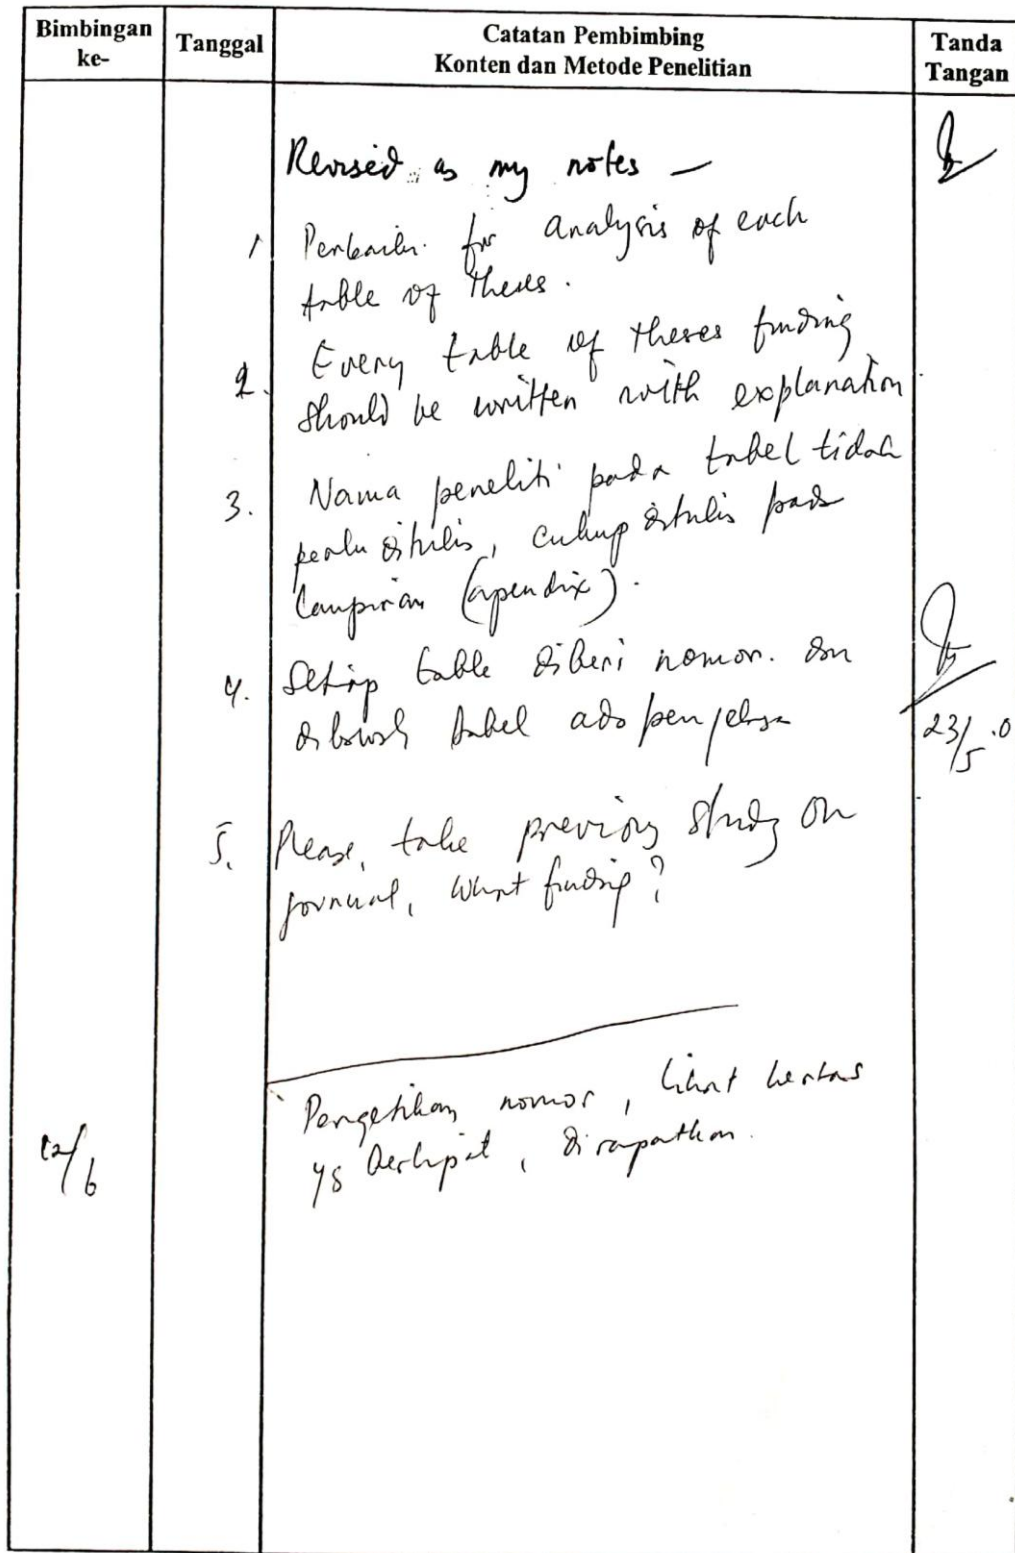 Bimbingan ke-
Tanggal
Catatan Pembimbing
Konten dan Metode Penelitian
Tanda Tangan
Revised as my notes –
1 Perbaiki for analysis of each
table of theses.
2. Every table of theses finding
should be written with explanation
3. Nama peneliti pada tabel tidak
perlu ditulis, cukup ditulis pada
lampiran (apendix).
4. Setiap table diberi nomor. dan
dibawah tabel ada penjelasan
23/5
5. Please, take previous study on
journal, what finding?
12/6
Pengetikan nomor, lihat kertas
yg berlipat, dirapatkan.